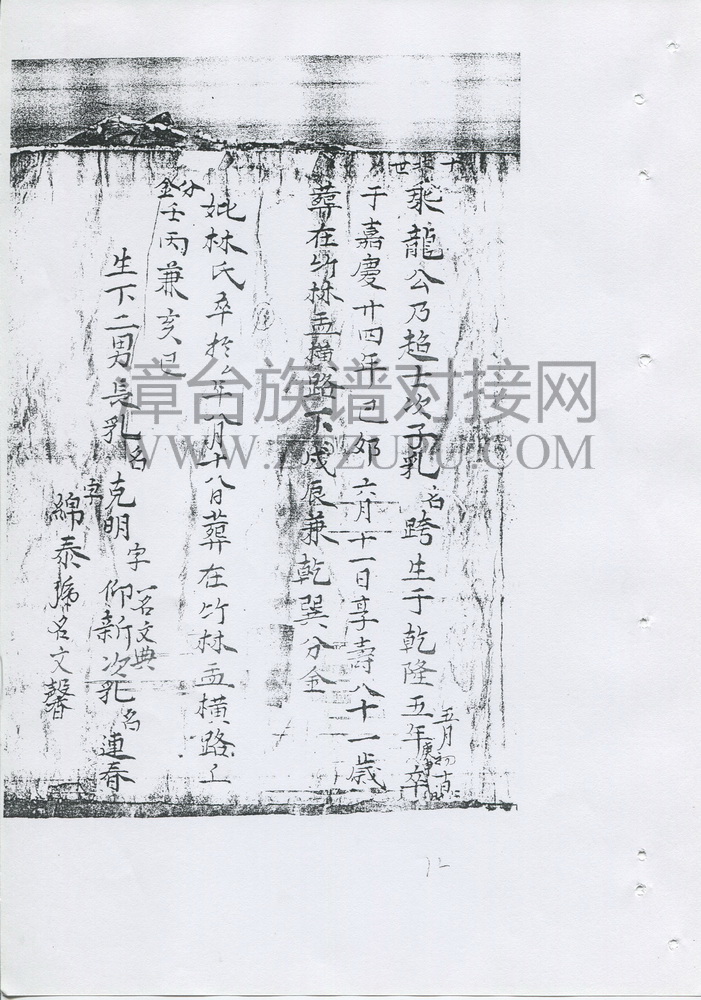 十世
乘龍公乃超士次子乳名跨生于乾隆五年庚申五月初卒
于嘉慶廿四年己卯六月十一日享壽八十一歲
葬在竹林盂橫路下戌辰兼乾巽分金
妣林氏卒於年八月十八日葬在竹林盂橫路上
分金壬丙兼亥巳
生下二男長乳名克明字仰新一名文典次乳名連春
字綿泰號名文馨
漳台族谱对接网
WWW.ZTZUPU.COM
12